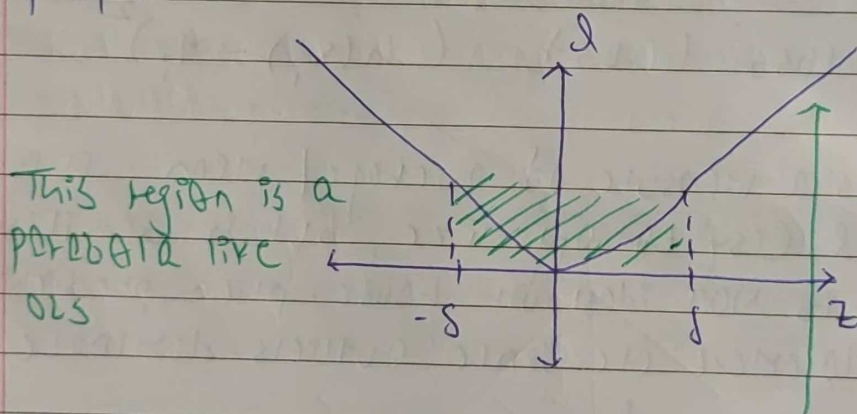 l
This region is a
parabola like
OLS
-δ
δ
z